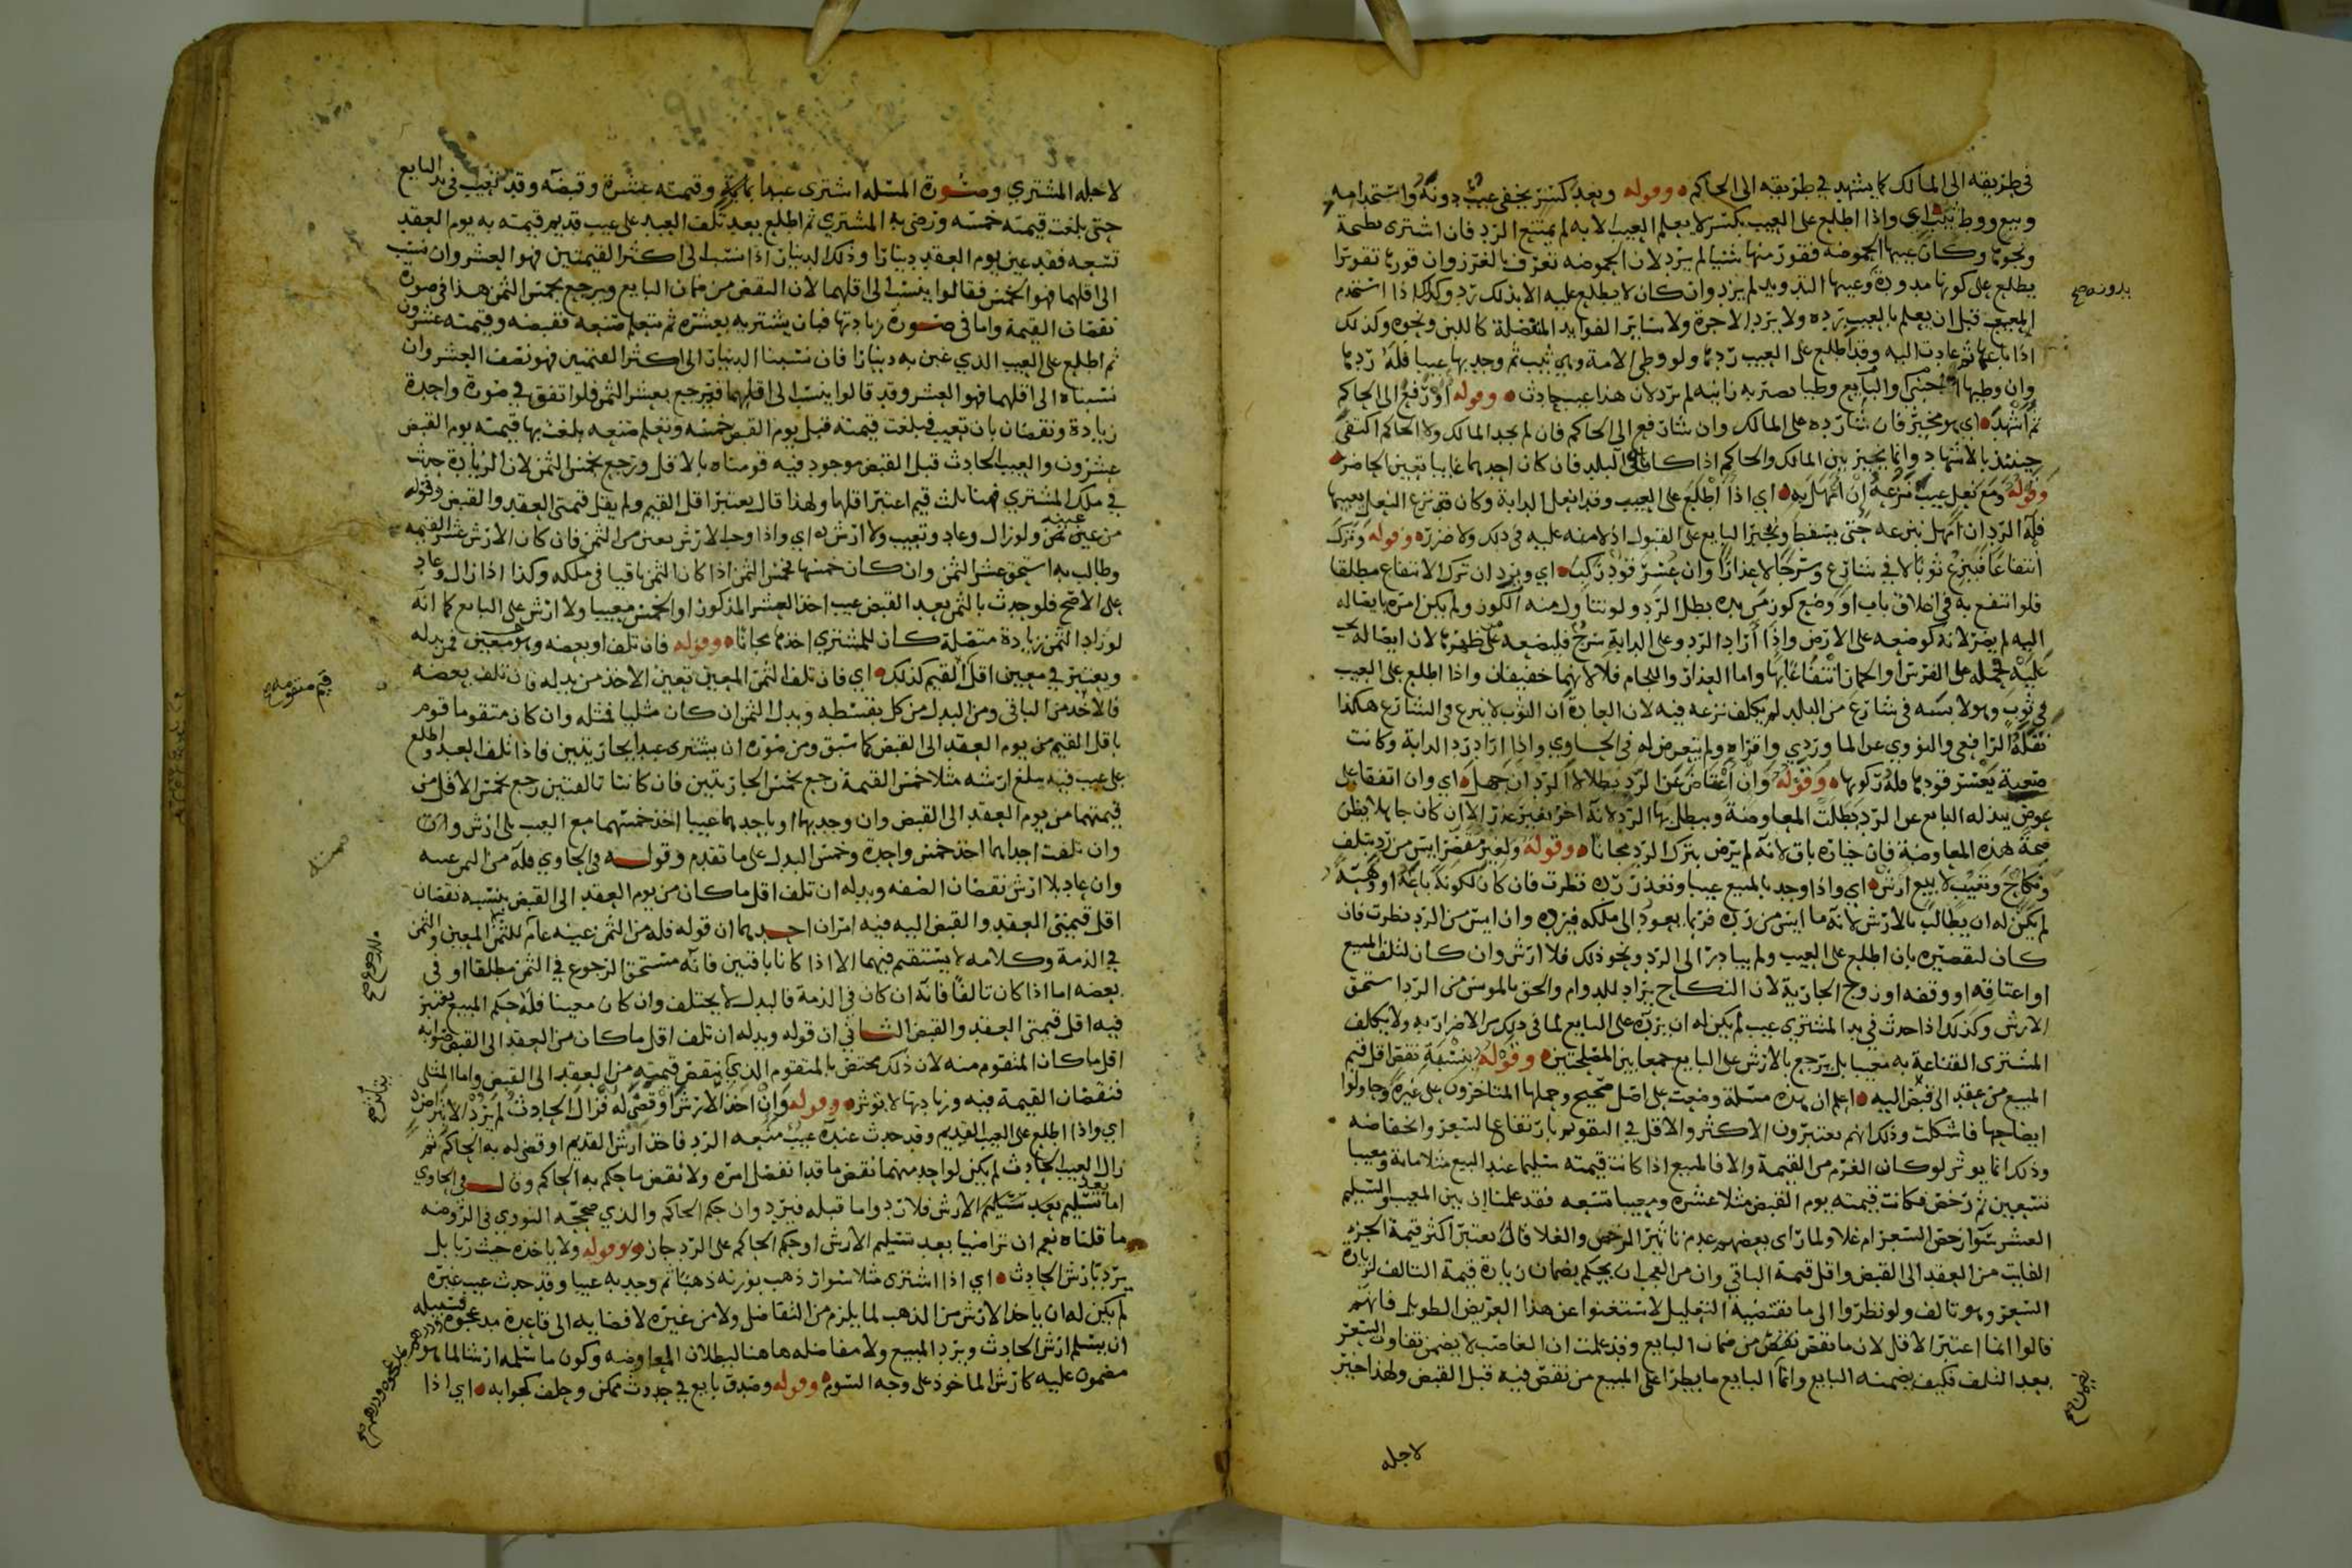 في طريقه الى المالك كما يشهد في طريقه الى الحاكم وقوله وبعد كسر يخفى عيب دونه واستخدامه
وبيع ووطئ ثيب اي واذا اطلع على العيب بكسر لا يعلم العيب الا به لم يمتنع الرد فان اشترى بطيخة
ونحوها وكان عيبها الحموضة فقور منها شيئا لم يرد لان الحموضة تعرف بالغرز وان قورها تقويرا
يطلع على كونها مدودة وعيبها التدويد لم يرد وان كان لا يطلع عليه الا بذلك رد وكذلك اذا استخدم
المعيب قبل ان يعلم بالعيب يرده ولا يرد الاجرة ولا سائر الفوايد المنفصلة كاللبن ونحوه وكذلك
اذا باعها ثم عادت اليه وقد اطلع على العيب ردها ولو وطئ الامة وهي ثيب ثم وجد بها عيبا فله ردها
وان وطيها اجنبي والبايع وطيا تصير به زانيه لم يرد لان هذا عيب حادث وقوله او رفع الى الحاكم
ثم اشهد اي هو مخير فان شا رده على المالك وان شا رفع الى الحاكم فان لم يجد المالك ولا الحاكم اكتفى
حينئذ بالاشهاد وانما يخير بين المالك والحاكم اذا كانا في البلد فان كان احدهما غايبا تعين الحاضر
وقوله ومع نعل عيب نزعه ان اهمل به اي اذا اطلع على العيب وقد انعل الدابة وكان نزع النعل يعيبها
فله الرد ان اهمل بنزعه حتى يسقط ويجبر البايع على القبول اذ لا منه عليه في ذلك ولا ضرر وقوله وترك
انتفاعا فينزع ثوبا لا في شارع وسرجا لا عذارا وان عسر قود ركب اي ويرد ان ترك الانتفاع مطلقا
فلو انتفع به في اغلاق باب او وضع كوز من يده بطل الرد ولو تناول منه الكوز ولم يكن امره بايصاله
اليه لم يضر لانه كوضعه على الارض واذا اراد الرد وعلى الدابة سرج فليضعه عن ظهرها لان ايصاله
عليه حمله على الفرس او الحمار انتفاعا بها واما العذار واللجام فلا لانهما خفيفان واذا اطلع على العيب
في ثوب وهو لابسه في شارع من البلد لم يكلف نزعه فيه لان العادة ان الثوب لا ينزع في الشارع هكذا
نقله الرافعي والنووي عن الماوردي واقراه ولم يتعرض له في الحاوي واذا اراد رد الدابة وكانت
صعبة يعسر قودها فله ركوبها وقوله وان اعتاض عن الرد بطلا لا الرد ان جهل اي وان اتفقا على
عوض يبذله البايع عن الرد بطلت المعاوضة ويبطل بها الرد لانه اخر بغير عذر الا ان كان جاهلا يظن
صحة هذه المعاوضة فان خياره باق لانه لم يرض بترك الرد مجانا وقوله ولغير مقصر ايس من رد بتلف
ونكاح وتعيب لا بيع ارش اي واذا وجد بالمبيع عيبا وتعذر رده نظرت فان كان لكونه باعه او وهبه
لم يكن له ان يطالب بالارش لانه ما ايس من رده فربما يعود الى ملكه فيرده وان ايس من الرد نظرت فان
كان لتقصيره بان اطلع على العيب ولم يبادر الى الرد ونحو ذلك فلا ارش وان كان لتلف المبيع
او اعتاقه او وقفه او زوج الجارية لان النكاح يراد للدوام والحق بالموس من الرد استحق
الارش وكذلك اذا حدث في يد المشتري عيب لم يكن له ان يرده على البايع لما في ذلك من الاضرار به ولا يكلف
المشتري القناعة به معيبا بل يرجع بالارش على البايع جمعا بين المصلحتين وقوله بنسبة نقص اقل قيم
المبيع من عقد الى قبض اليه اعلم ان هذه مسئلة وضعت على اصل صحيح وحملها المتاخرون على غيره وحاولوا
ايضاحها فاشكلت وذلك انهم يعتبرون الاكثر والاقل في التقويم بارتفاع السعر وانخفاضه
وذلك انما يوثر لو كان الغرم من القيمة والا فالمبيع اذا كانت قيمته سليما عند البيع مثلا ماية ومعيبا
تسعين ثم رخص فكانت قيمته يوم القبض مثلا عشره ومعيبا تسعه فقد علمنا ان بين المعيب والسليم
العشر سوا رخص السعر ام غلا ولما راى بعضهم عدم تاثير الرخص والغلا قال يعتبر اكثر قيمة الجزء
الفايت من العقد الى القبض واقل قيمة الباقي وان من العجب ان يحكم بضمان زيادة قيمة التالف لزيادة
السعر وهو تالف ولو نظروا الى ما تقتضيه التعليل لاستغنوا عن هذا العريض الطويل فانهم
قالوا انما اعتبر الاقل لان ما نقص نقص من ضمان البايع وقد علمت ان الغاصب لا يضمن تفاوت السعر
بعد التلف فكيف يضمنه البايع وانما البايع ما يطرا على المبيع من نقص فيه قبل القبض ولهذا خير
بدونه صح
يضمن صح
لاجله
لاجله المشتري وصورة المسئلة اشترى عبدا بماية وقيمته عشرة وقبضه وقد تعيب في يد البايع
حتى بلغت قيمته خمسه ورضي به المشتري ثم اطلع بعد تلف العبد على عيب قديم قيمته به يوم العقد
تسعه فقد عين يوم العقد دينارا وذلك الدينار اذا نسب الى اكثر القيمتين فهو العشر وان نسب
الى اقلهما فهو الخمس فقالوا ينسب الى اقلهما لان النقص من ضمان البايع ويرجع بخمس الثمن هذا في صورة
نقصان القيمة واما في صورة زيادتها فبان يشتريه بعشره ثم يتعلم صنعه فقبضه وقيمته عشرون
ثم اطلع على العيب الذي غبن به دينارا فان نسبنا الدينار الى اكثر القيمتين فهو نصف العشر وان
نسبناه الى اقلهما فهو العشر وقد قالوا ينسب الى اقلهما فيرجع بعشر الثمن فلو اتفق في صورة واحدة
زيادة ونقصان بان تعيب فبلغت قيمته قبل يوم القبض خمسه وتعلم صنعه بلغت بها قيمته يوم القبض
عشرون والعيب الحادث قبل القبض موجود فيه قومناه بالاقل ورجع بخمس الثمن لان الزيادة حدثت
في ملك المشتري فهنا ثلث قيم اعتبر اقلها ولهذا قال يعتبر اقل القيم ولم يقل قيمتي العقد والقبض وقوله
من عين ثمن ولو زال وعاد وتعيب ولا ارش اي واذا وجب الارش تعين من الثمن فان كان الارش عشر القيمة
وطالب به استحق عشر الثمن وان كان خمسها فخمس الثمن اذا كان الثمن باقيا في ملكه وكذا اذا زال وعاد
على الاصح فلو حدث بالثمن بعد القبض عيب اخذ العشر المذكور او الخمس معيبا ولا ارش على البايع كما انه
لو زاد الثمن زيادة متصلة كان للمشتري اخذها مجانا وقوله فان تلف او بعضه وهو معين فمن بدله
ويعتبر في معين اقل القيم كذلك اي فان تلف الثمن المعين تعين الاخذ من بدله فان تلف بعضه
فالاخذ من الباقي ومن البدل من كل بقسطه وبدل الثمن ان كان مثليا فمثله وان كان متقوما قوم
باقل القيم من يوم العقد الى القبض كما سبق ومن صوره ان يشتري عبدا بجاريتين فاذا تلف العبد واطلع
على عيب فيه مبلغ ارشه مثلا خمس القيمة رجع بخمس الجاريتين فان كانتا تالفتين رجع بخمس الاقل من
قيمتهما من يوم العقد الى القبض وان وجد بهما او باحدهما عيبا اخذ خمسهما مع العيب بلا ارش
وان تلفت احداهما اخذ خمس واحدة وخمس البدل على ما تقدم وقوله في الحاوي فله من الثمن عينه
وان عاد بلا ارش نقصان الصفه وبدله ان تلف اقل ما كان من يوم العقد الى القبض بنسبه نقصان
اقل قيمتي العقد والقبض اليه فيه امران احدهما ان قوله فله من الثمن عينه عام للثمن المعين والثمن
في الذمة وكلامه لا يستقيم فيهما الا اذا كانا باقيين فانه مستحق الرجوع في الثمن مطلقا او في
بعضه اما اذا كان تالفا فانه ان كان في الذمة فالبدل لا يختلف وان كان معينا فله حكم المبيع يعتبر
فيه اقل قيمتي العقد والقبض الثاني ان قوله وبدله ان تلف اقل ما كان من العقد الى القبض صوابه
اقل ما كان المتقوم منه لان ذلك مختص بالمتقوم الذي تنقص قيمته من العقد الى القبض واما المثلي
فنقصان القيمة فيه وزيادتها لا توثر وقوله وان اخذ الارش او قضي له فزال الحادث لم يرد الا بتراض
اي واذا اطلع على العيب القديم وقد حدث عنده عيب منعه الرد فاخذ ارش القديم او قضى له به الحاكم ثم
زال العيب الحادث لم يكن لواحد منهما نقض ما قد انفصل امره ولا نقض ما حكم به الحاكم وقال في الحاوي
اما تسليم بعد تسليم الارش فلا رد واما قبله فيرد وان حكم الحاكم والذي صححه النووي في الروضه
ما قلناه نعم ان تراضيا بعد تسليم الارش او حكم الحاكم على الرد جاز وقوله ولا ياخذه حيث ربا بل
يرد بارش الحادث اي اذا اشترى مثلا سوار ذهب بوزنه ذهبا ثم وجد به عيبا وقد حدث عيب غيره
لم يكن له ان ياخذ الارش من الذهب لما يلزم من التفاضل ولا من غيره لافضايه الى قاعدة مد عجوة فسبيله
ان يسلم ارش الحادث ويرد المبيع ولا مفاضله هاهنا لبطلان المعاوضه وكون ما سلمه ارشا لما هو
مضمون عليه كارش الماخوذ على وجه السوم وقوله وصدق بايع في حدوث ممكن وحلف كجوابه اي اذا
قيم متقومه صح
الرجوع صح
بتأثير صح